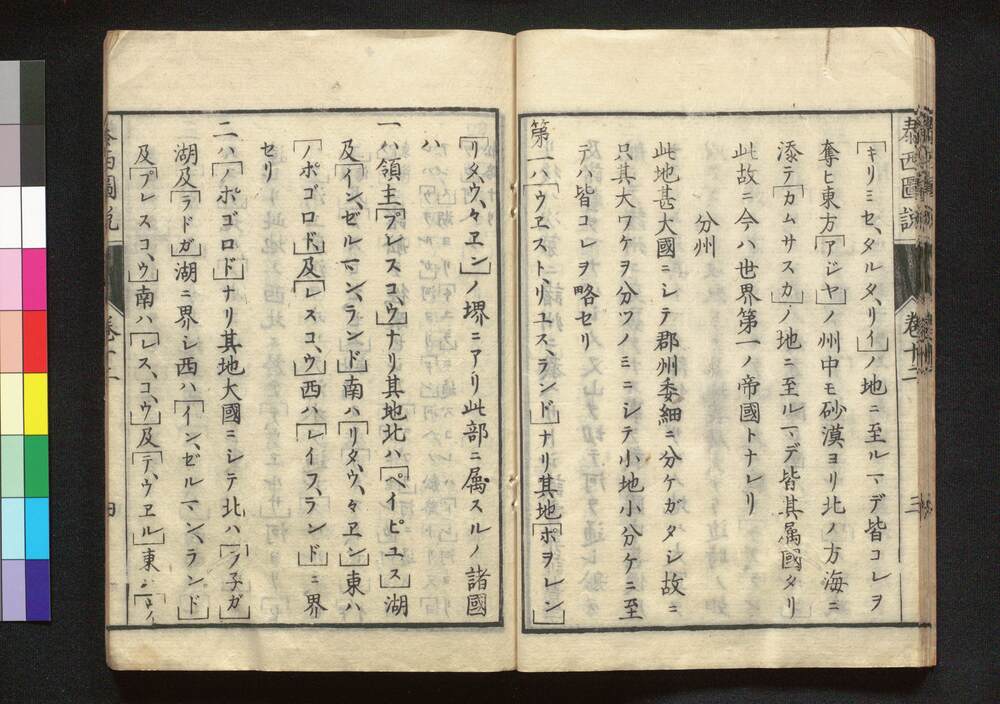 泰西圖說
卷十二
三
「キリミセ、タルタ、リイ」ノ地ニ至ルマデ皆コレヲ
奪ヒ東方「アジヤ」ノ州中モ砂漠ヨリ北ノ方海ニ
添テ「カムサスカ」ノ地ニ至ルマデ皆其属國タリ
此故ニ今ハ世界第一ノ帝國トナレリ
分州
此地甚大國ニシテ郡州委細ニ分ケガタシ故ニ
只其大ワケヲ分ツノミニシテ小地小分ケニ至
テハ皆コレヲ略セリ
第一ハ「ウヱスト、リユス、ランド」ナリ其地「ポヲレン」
「リタウ、々ヱン」ノ堺ニアリ此部ニ属スルノ諸國
ハ
一ハ領主「プレスコ、ウ」ナリ其地北ハ「ペイピユス」湖
及「イン、ゼルマン、ランド」南ハ「リタ、ウ、々ヱン」東ハ
「ノポゴロド」及「レスコ、ウ」西ハ「レイフ、ランド」ニ界
セリ
二ハ「ノポゴロド」ナリ其地大國ニシテ北ハ「ヲ子ガ」
湖及「ラドガ」湖ニ界シ西ハ「イン、ゼルマン、ランド」
及「プレスコ、ウ」南ハ「レス、コ、ウ」及「テ、ウヱル」東ハ
泰西圖說
卷十二
四